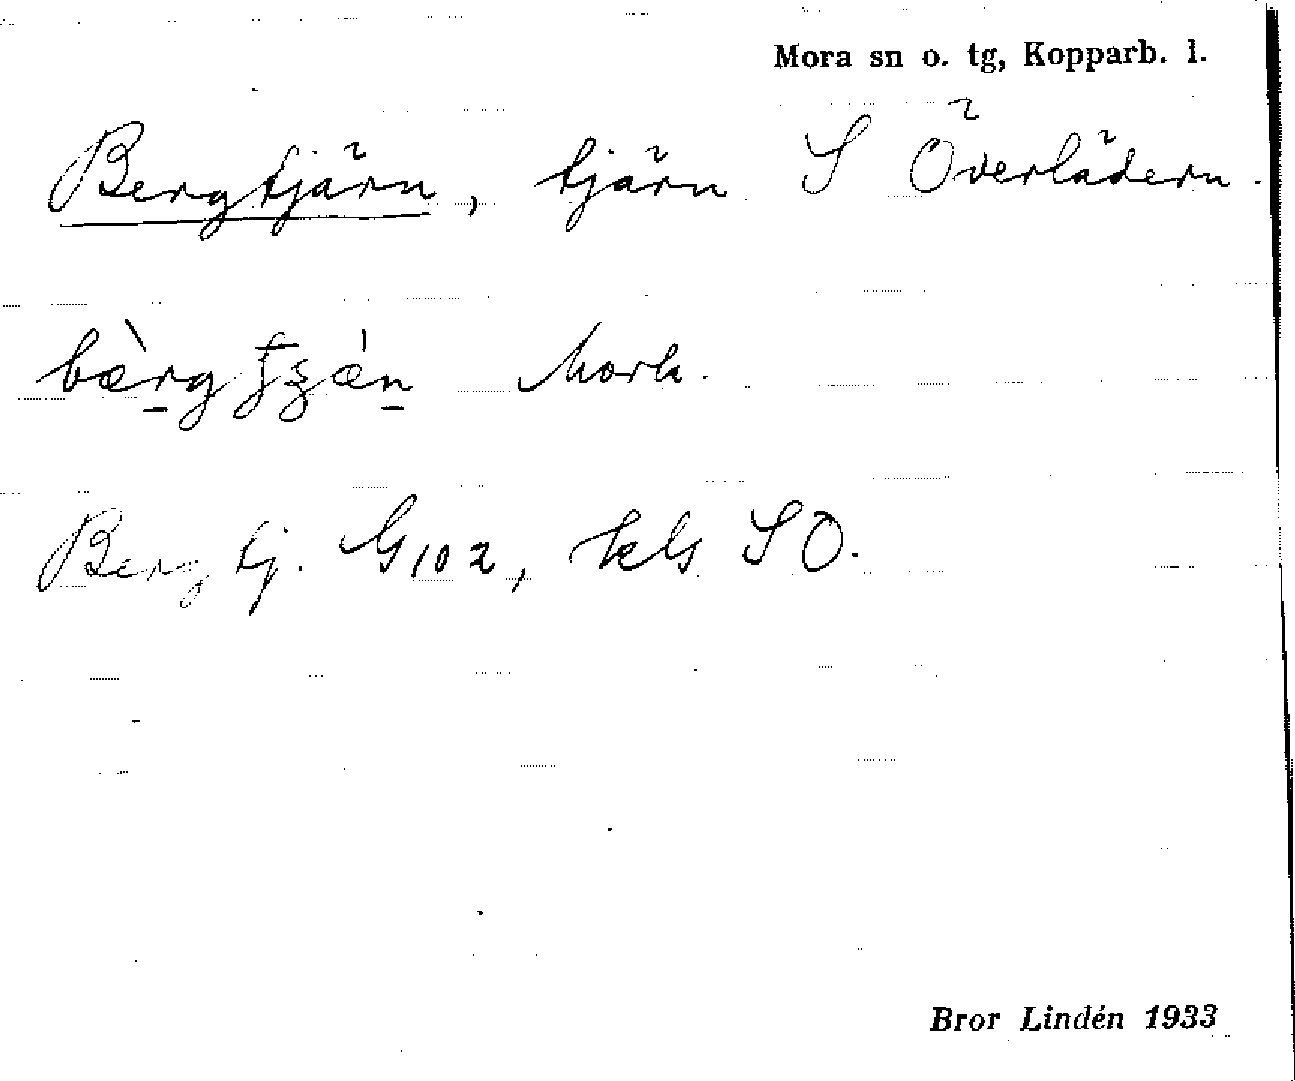 Mora sn o. tg, Kopparb. l.
Bergtjärn, tjärn S Överlädern.
Mork.
Berg tj. G102, kls SO.
Bror Lindén 1933